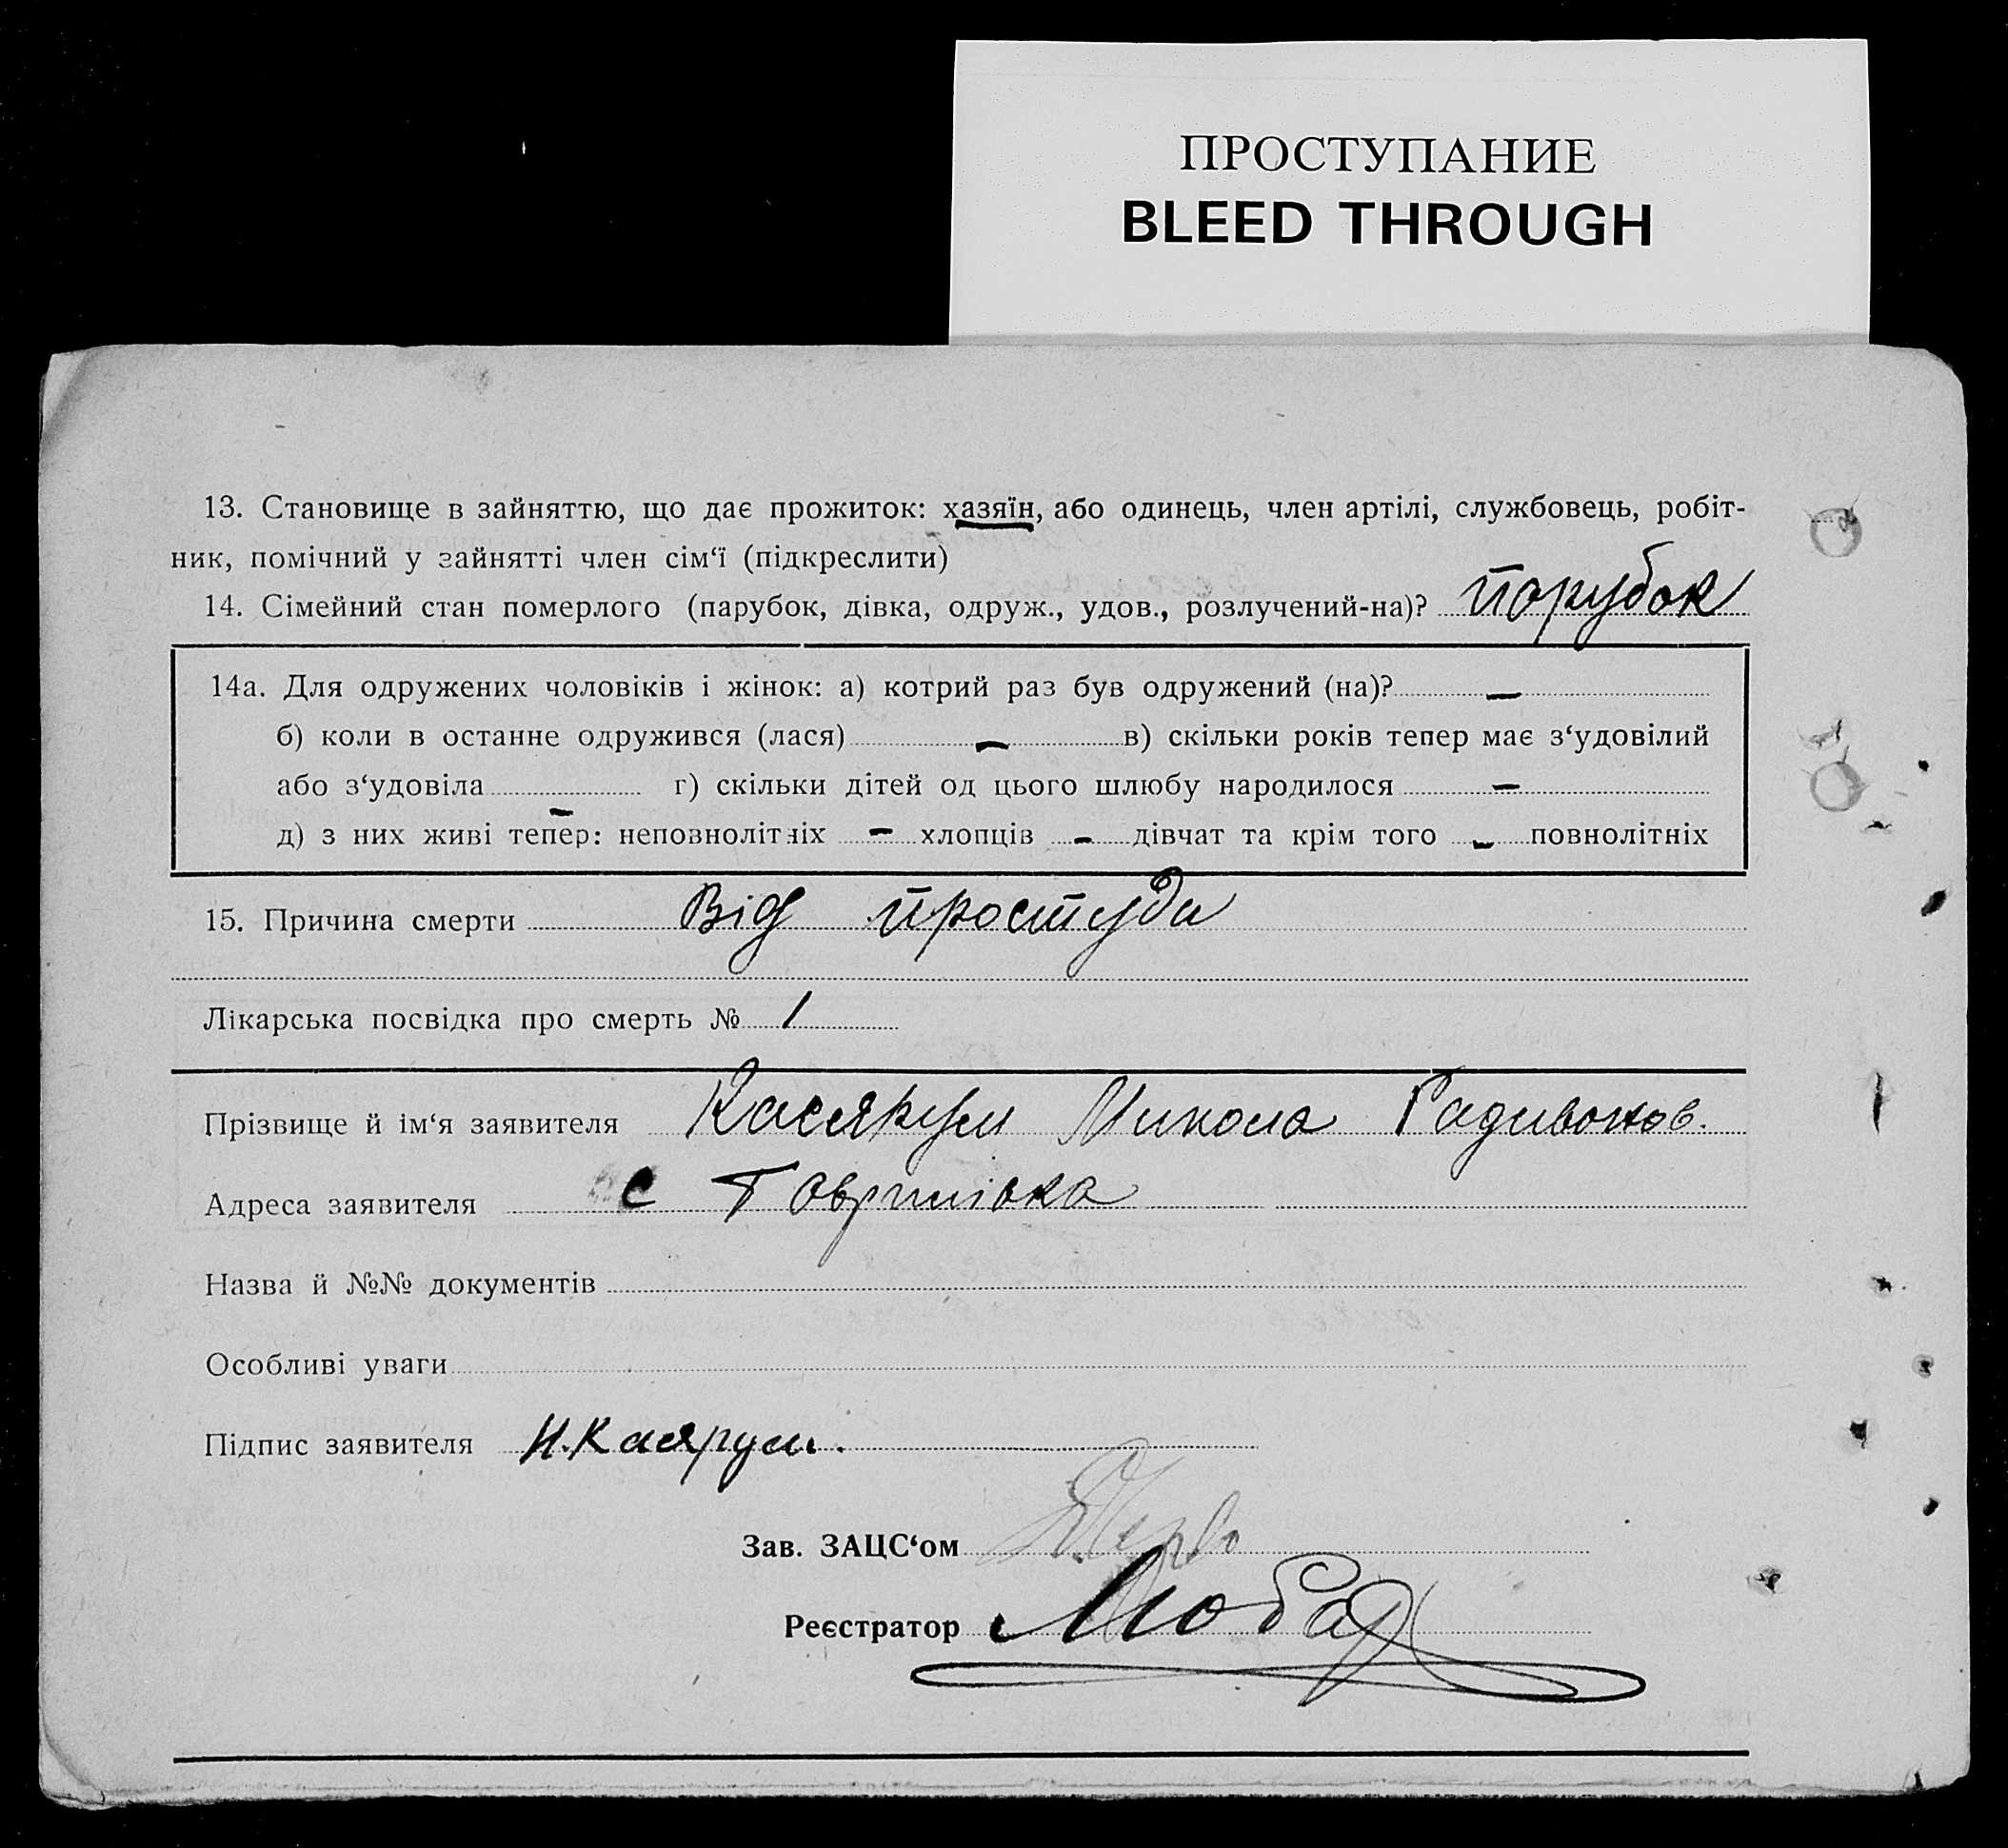 ПРОСТУПАНИЕ
BLEED THROUGH
13. Становище в зайняттю, що дає прожиток: хазяїн, або одинець, член артілі, службовець, робіт-
ник, помічний у зайнятті член сім‘ї (підкреслити)
14. Сімейний стан померлого (парубок, дівка, одруж., удов., розлучений-на)? порубок
14а. Для одружених чоловіків і жінок: а) котрий раз був одружений (на)? —
б) коли в останне одружився (лася) — в) скільки років тепер має з‘удовілий
або з‘удовіла — г) скільки дітей од цього шлюбу народилося —
д) з них живі тепер: неповнолітніх - хлопців - дівчат та крім того - повнолітніх
15. Причина смерти Від простуди
Лікарська посвідка про смерть № 1
Прізвище й ім‘я заявителя Касярум Микола Радивонов.
Адреса заявителя с Гаврилівка
Назва й №№ документів
Особливі уваги
Підпис заявителя Н. Касярум.
Зав. ЗАЦС‘ом
Реєстратор